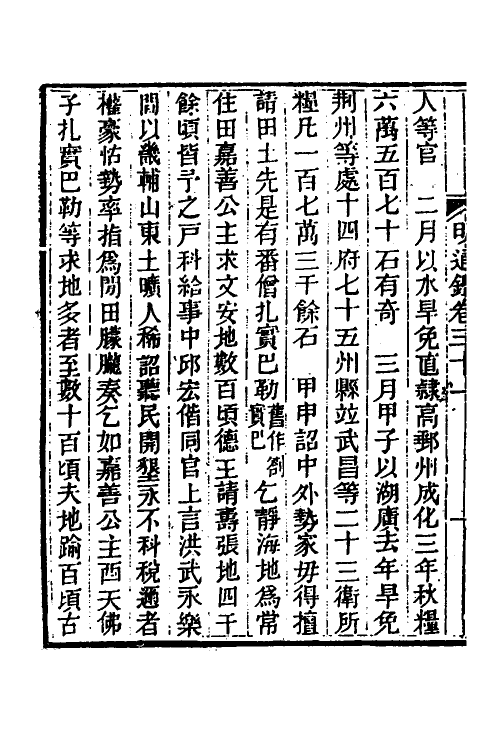 明通鑑卷三十一 一
人等官　二月以水旱免直隸高郵州成化三年秋糧
六萬五百七十石有奇　三月甲子以湖廣去年旱免
荆州等處十四府七十五州縣竝武昌等二十三衛所
糧凡一百七萬三千餘石　甲申詔中外勢家毋得擅
請田土先是有番僧扎實巴勒舊作劄實巴乞靜海地爲常
住田嘉善公主求文安地數百頃德王請壽張地四千
餘頃皆予之戸科給事中邱宏偕同官上言洪武永樂
間以畿輔山東土曠人稀詔聽民開墾永不科稅邇者
權豪怙勢率指爲閒田朦朧奏乞如嘉善公主西天佛
子扎實巴勒等求地多者至數十百頃夫地踰百頃古